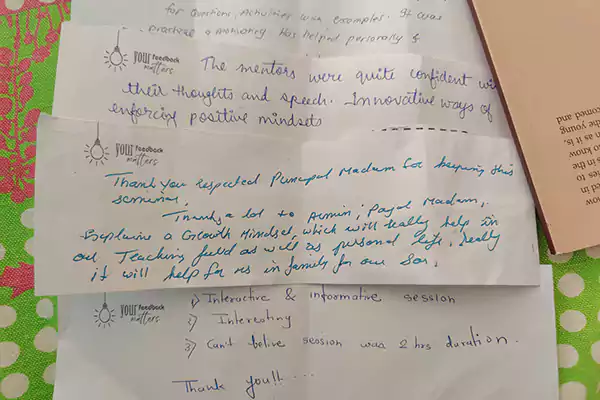 for Questions, Activities with examples. It was
practical & motivating has helped personally &
your feedback
matters
The mentors were quite confident wi
their thoughts and speech. Innovative ways of
enforcing positive mindsets
your feedback
matters
Thank you respected Principal Madam for keeping this
seminar.
Thanks a lot to Armin, Payal Madam,
Explaine a Growth Mindset, which will really help in
our Teaching field as well as personal life, really
it will help for us in family for our Son.
your feedback
matters
1) Interactive & informative session
2) Interesting
3) Can't belive session was 2 hrs duration.
Thank you!!....
comed and
as it is.
the young
so know
is in the
ties to
ed in
now